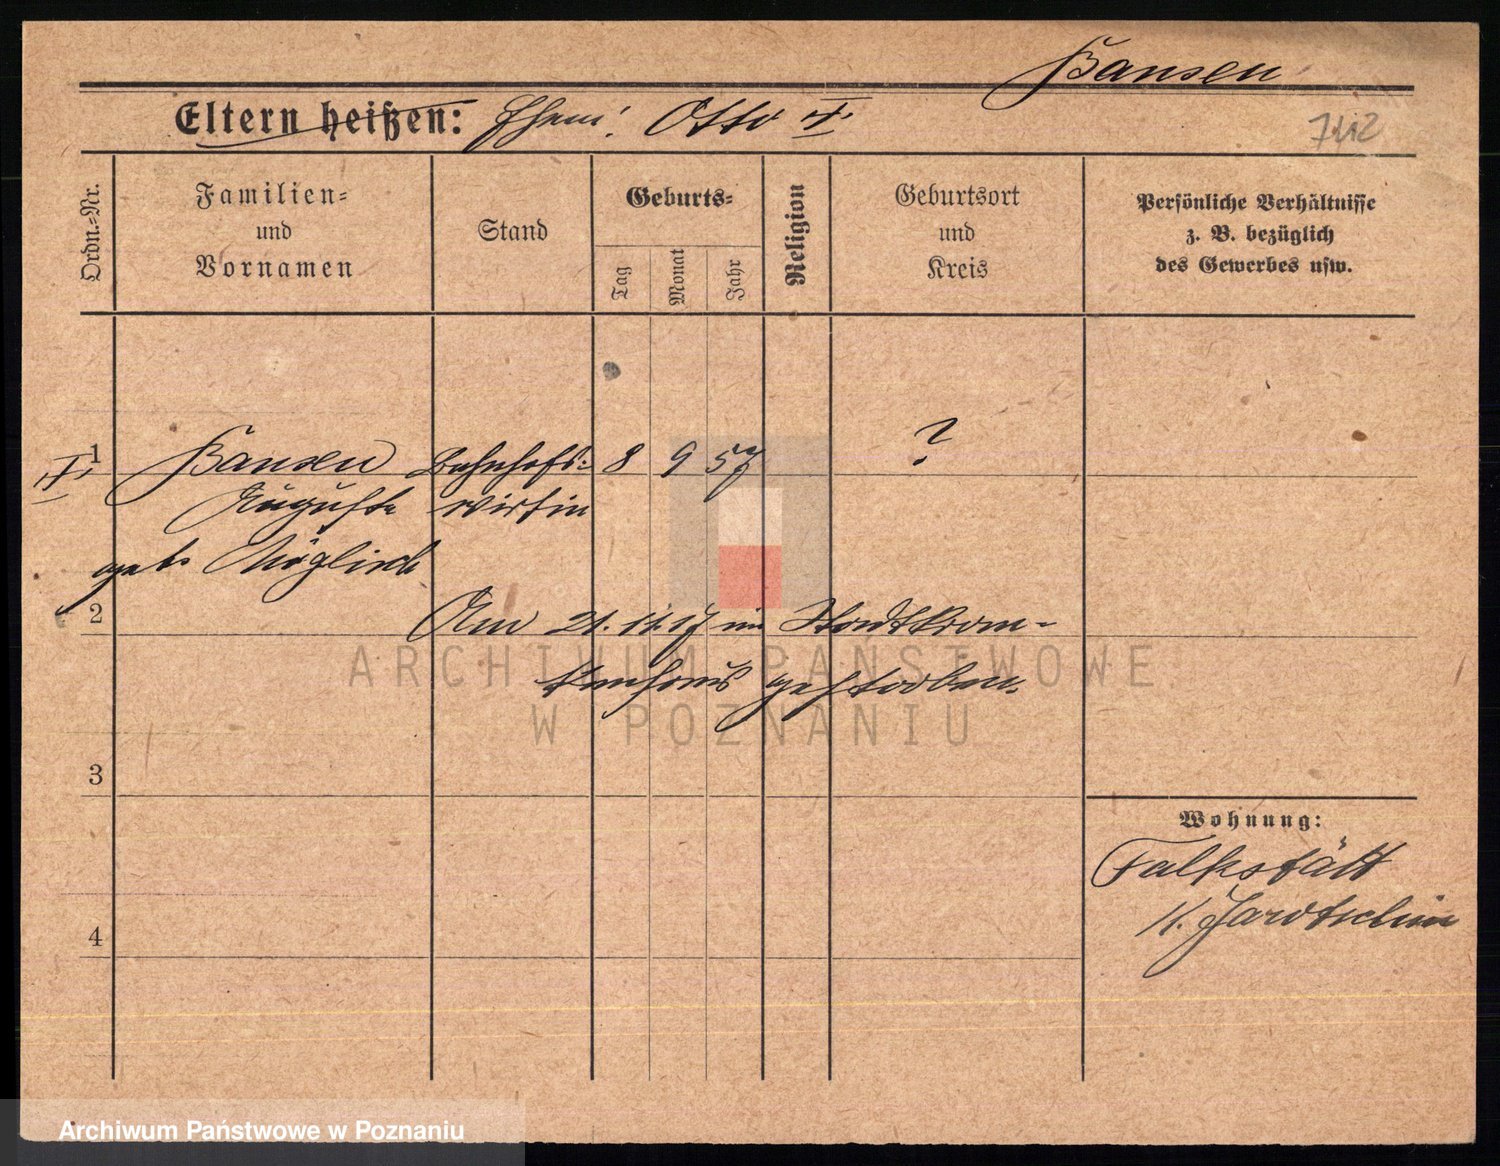 Bansen
Eltern heißen: Ehem: Otto †
7412
Ordn.-Nr.
Familien-
und
Vornamen
Stand
Geburts-
Tag
Monat
Jahr
Religion
Geburtsort
und
Kreis
Persönliche Verhältnisse
z. B. bezüglich
des Gewerbes usw.
† 1 Bansen Bahnhofs- 8 9 57 ?
Auguste wirtin
geb. Möglich
2 Am 21.11.17 im Stadtkran-
kenhaus gestorben.
ARCHIWUM PAŃSTWOWE
W POZNANIU
3
Wohnung:
Falkstätt
K. Jarotschin
4
Archiwum Państwowe w Poznaniu